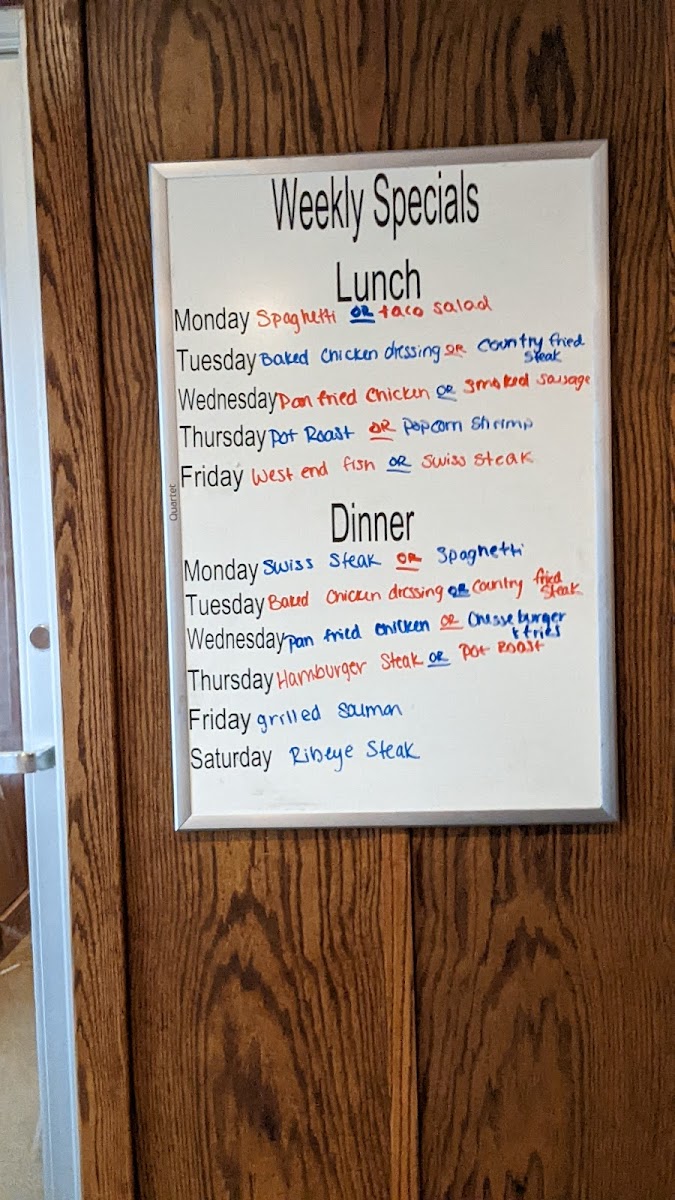 Weekly Specials
Lunch
Monday Spaghetti OR taco salad
Tuesday Baked Chicken dressing OR Country fried
steak
Wednesday Pan fried Chicken OR Smoked Sausage
Thursday Pot Roast OR Popcorn Shrimp
Friday West end fish OR Swiss Steak
Quartet
Dinner
Monday Swiss Steak OR Spaghetti
Tuesday Baked Chicken dressing OR Country fried
Steak
Wednesday Pan fried Chicken OR Chesseburger
& fries
Thursday Hamburger Steak OR Pot Roast
Friday grilled Salmon
Saturday Ribeye Steak